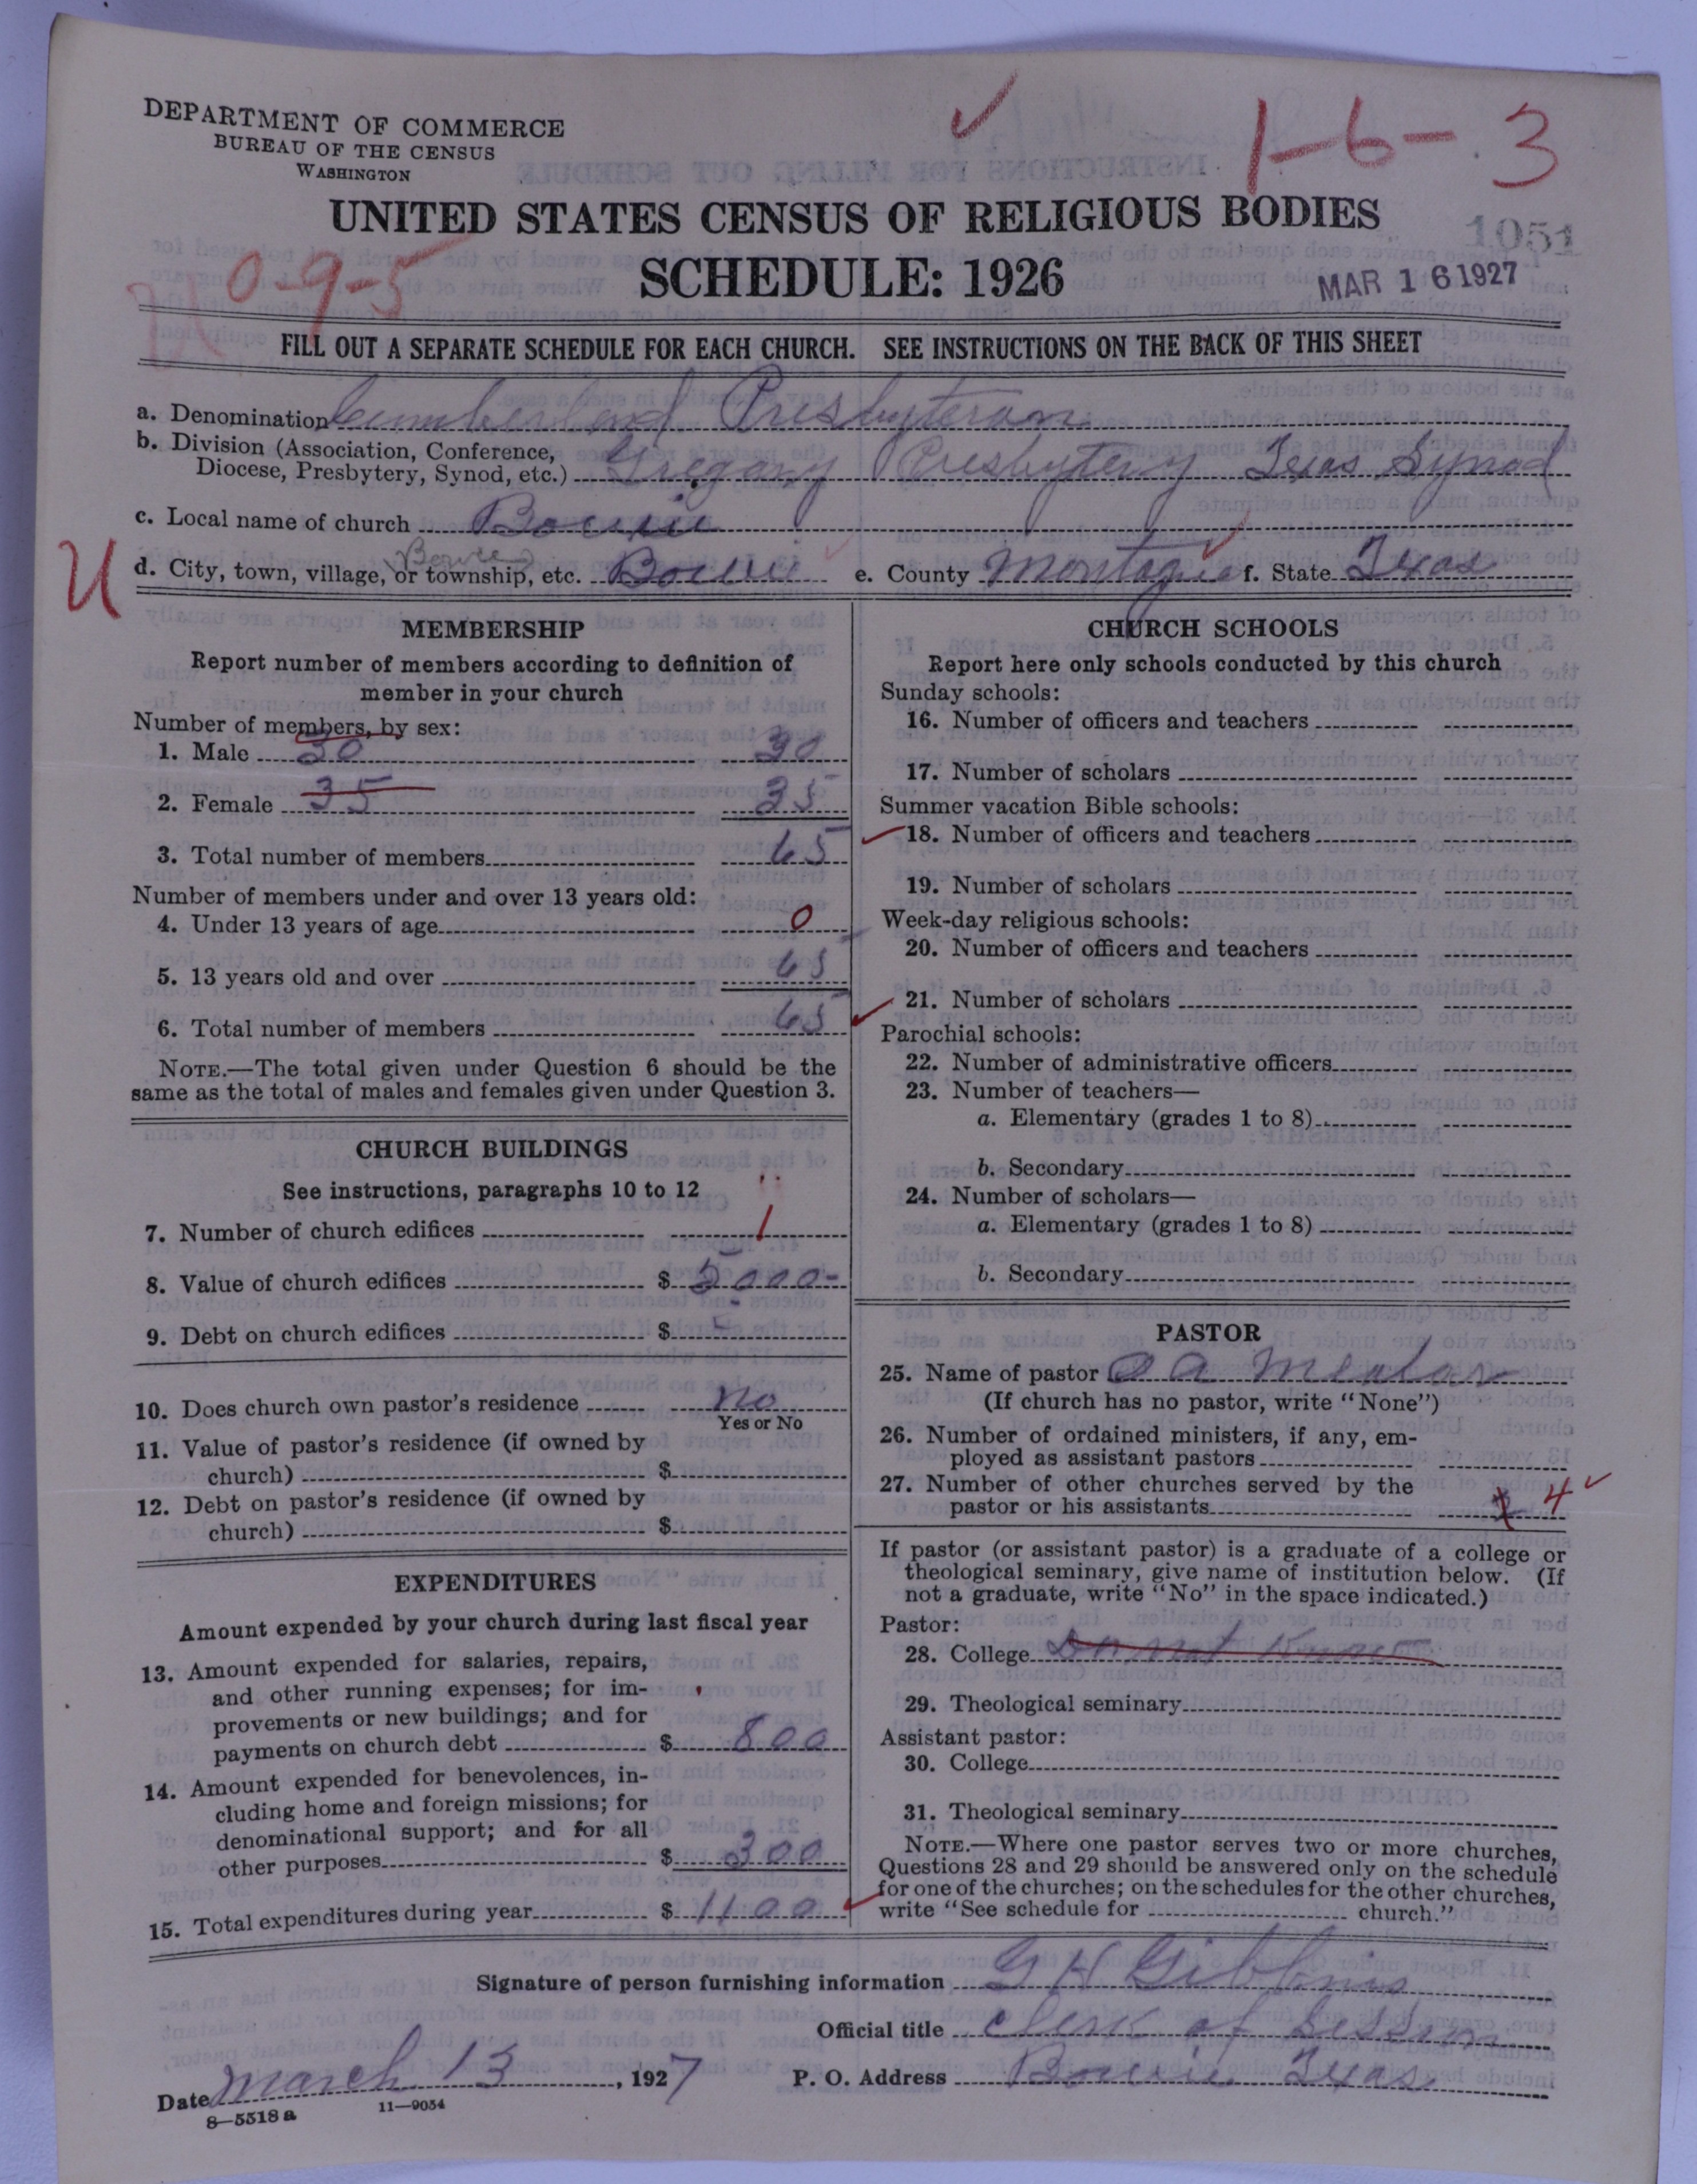 DEPARTMENT OF COMMERCE
BUREAU OF THE CENSUS
WASHINGTON
1-6-3
UNITED STATES CENSUS OF RELIGIOUS BODIES
SCHEDULE: 1926
1051
MAR 16 1927
0-9-5
FILL OUT A SEPARATE SCHEDULE FOR EACH CHURCH. SEE INSTRUCTIONS ON THE BACK OF THIS SHEET
a. Denomination Cumberland Presbyteran
b. Division (Association, Conference,
Diocese, Presbytery, Synod, etc.) Gregory Presbytery Texas Synod
c. Local name of church Bowie
Bowie
U
d. City, town, village, or township, etc. Bowie e. County Montague f. State Texas
MEMBERSHIP
Report number of members according to definition of
member in your church
Number of members, by sex:
1. Male 30 30
2. Female 35 35
3. Total number of members 65
Number of members under and over 13 years old:
4. Under 13 years of age 0
5. 13 years old and over 65
6. Total number of members 65
NOTE.—The total given under Question 6 should be the
same as the total of males and females given under Question 3.
CHURCH BUILDINGS
See instructions, paragraphs 10 to 12
7. Number of church edifices 1
8. Value of church edifices $ 5000-
9. Debt on church edifices $
10. Does church own pastor's residence No
Yes or No
11. Value of pastor's residence (if owned by
church) $
12. Debt on pastor's residence (if owned by
church) $
EXPENDITURES
Amount expended by your church during last fiscal year
13. Amount expended for salaries, repairs,
and other running expenses; for im-
provements or new buildings; and for
payments on church debt $ 800
14. Amount expended for benevolences, in-
cluding home and foreign missions; for
denominational support; and for all
other purposes $ 300
15. Total expenditures during year $ 1100
CHURCH SCHOOLS
Report here only schools conducted by this church
Sunday schools:
16. Number of officers and teachers
17. Number of scholars
Summer vacation Bible schools:
18. Number of officers and teachers
19. Number of scholars
Week-day religious schools:
20. Number of officers and teachers
21. Number of scholars
Parochial schools:
22. Number of administrative officers
23. Number of teachers—
a. Elementary (grades 1 to 8)
b. Secondary
24. Number of scholars—
a. Elementary (grades 1 to 8)
b. Secondary
PASTOR
25. Name of pastor O A Meador
(If church has no pastor, write "None")
26. Number of ordained ministers, if any, em-
ployed as assistant pastors
27. Number of other churches served by the
pastor or his assistants 4
If pastor (or assistant pastor) is a graduate of a college or
theological seminary, give name of institution below. (If
not a graduate, write "No" in the space indicated.)
Pastor:
28. College Do not Know
29. Theological seminary
Assistant pastor:
30. College
31. Theological seminary
NOTE.—Where one pastor serves two or more churches,
Questions 28 and 29 should be answered only on the schedule
for one of the churches; on the schedules for the other churches,
write "See schedule for church."
Signature of person furnishing information G H Gibbins
Official title Clerk of Session
Date March 13, 1927 P. O. Address Bowie Texas
8-5518 a 11-9054